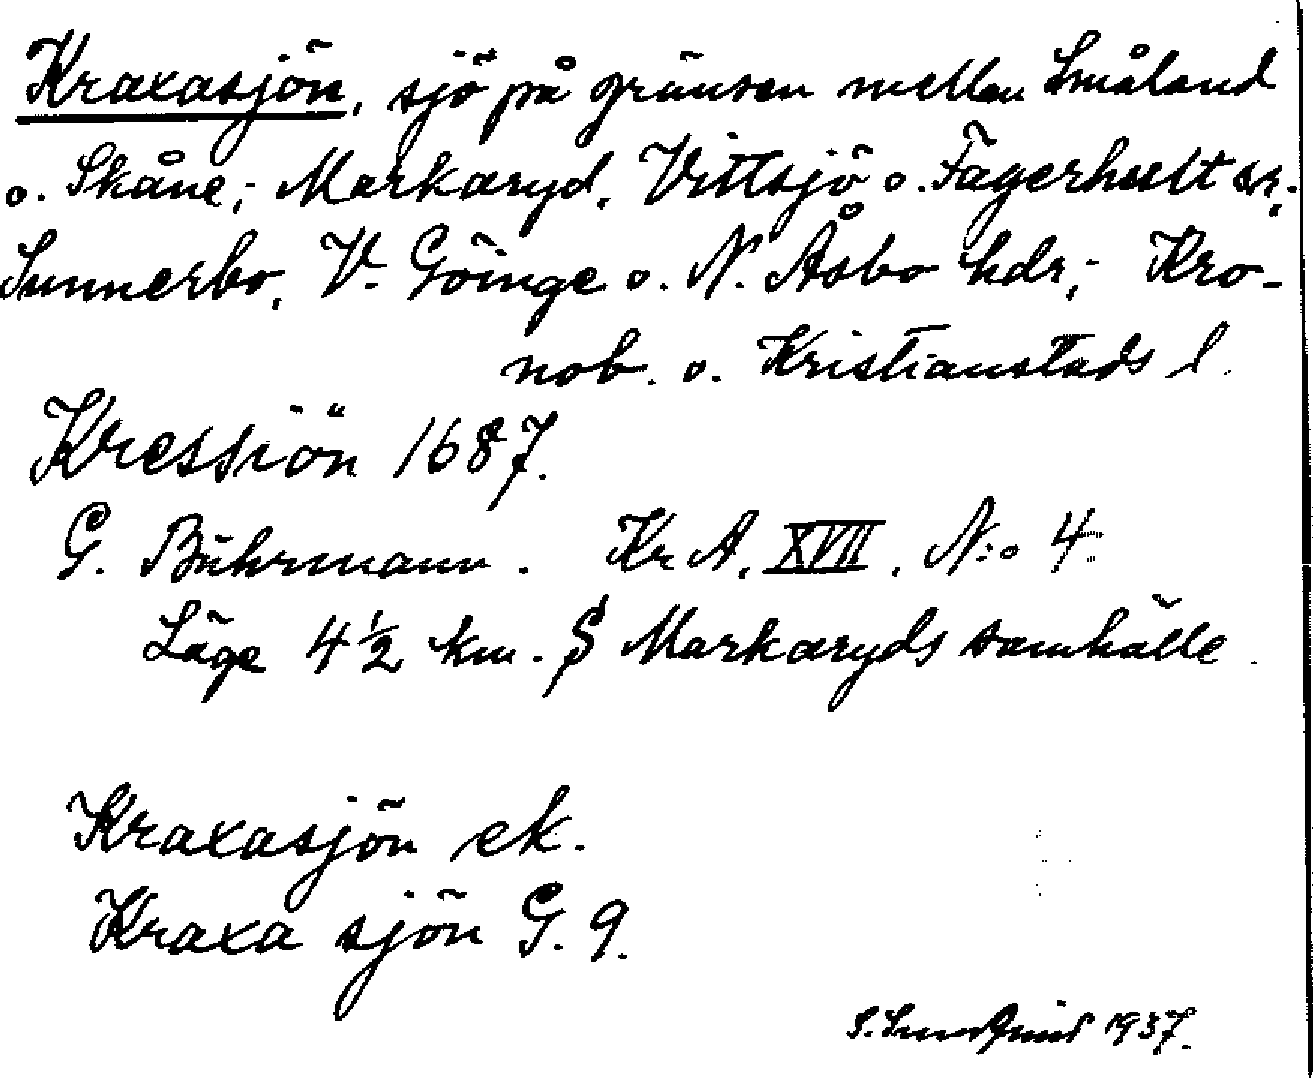 Kraxasjön, sjö på gränsen mellan Småland
o. Skåne; Markaryd, Vittsjö o. Fagerhult sn,
Sunnerbo, V. Göinge o. N. Åsbo hdr; Kro-
nob. o. Kristianstads l.
Kressiön 1687.
G. Buhrmann. Kr A. XVII. N:o 4.
Läge 4½ km. S Markaryds samhälle.
Kraxasjön ek.
Kraxa sjön G. 9.
1937.